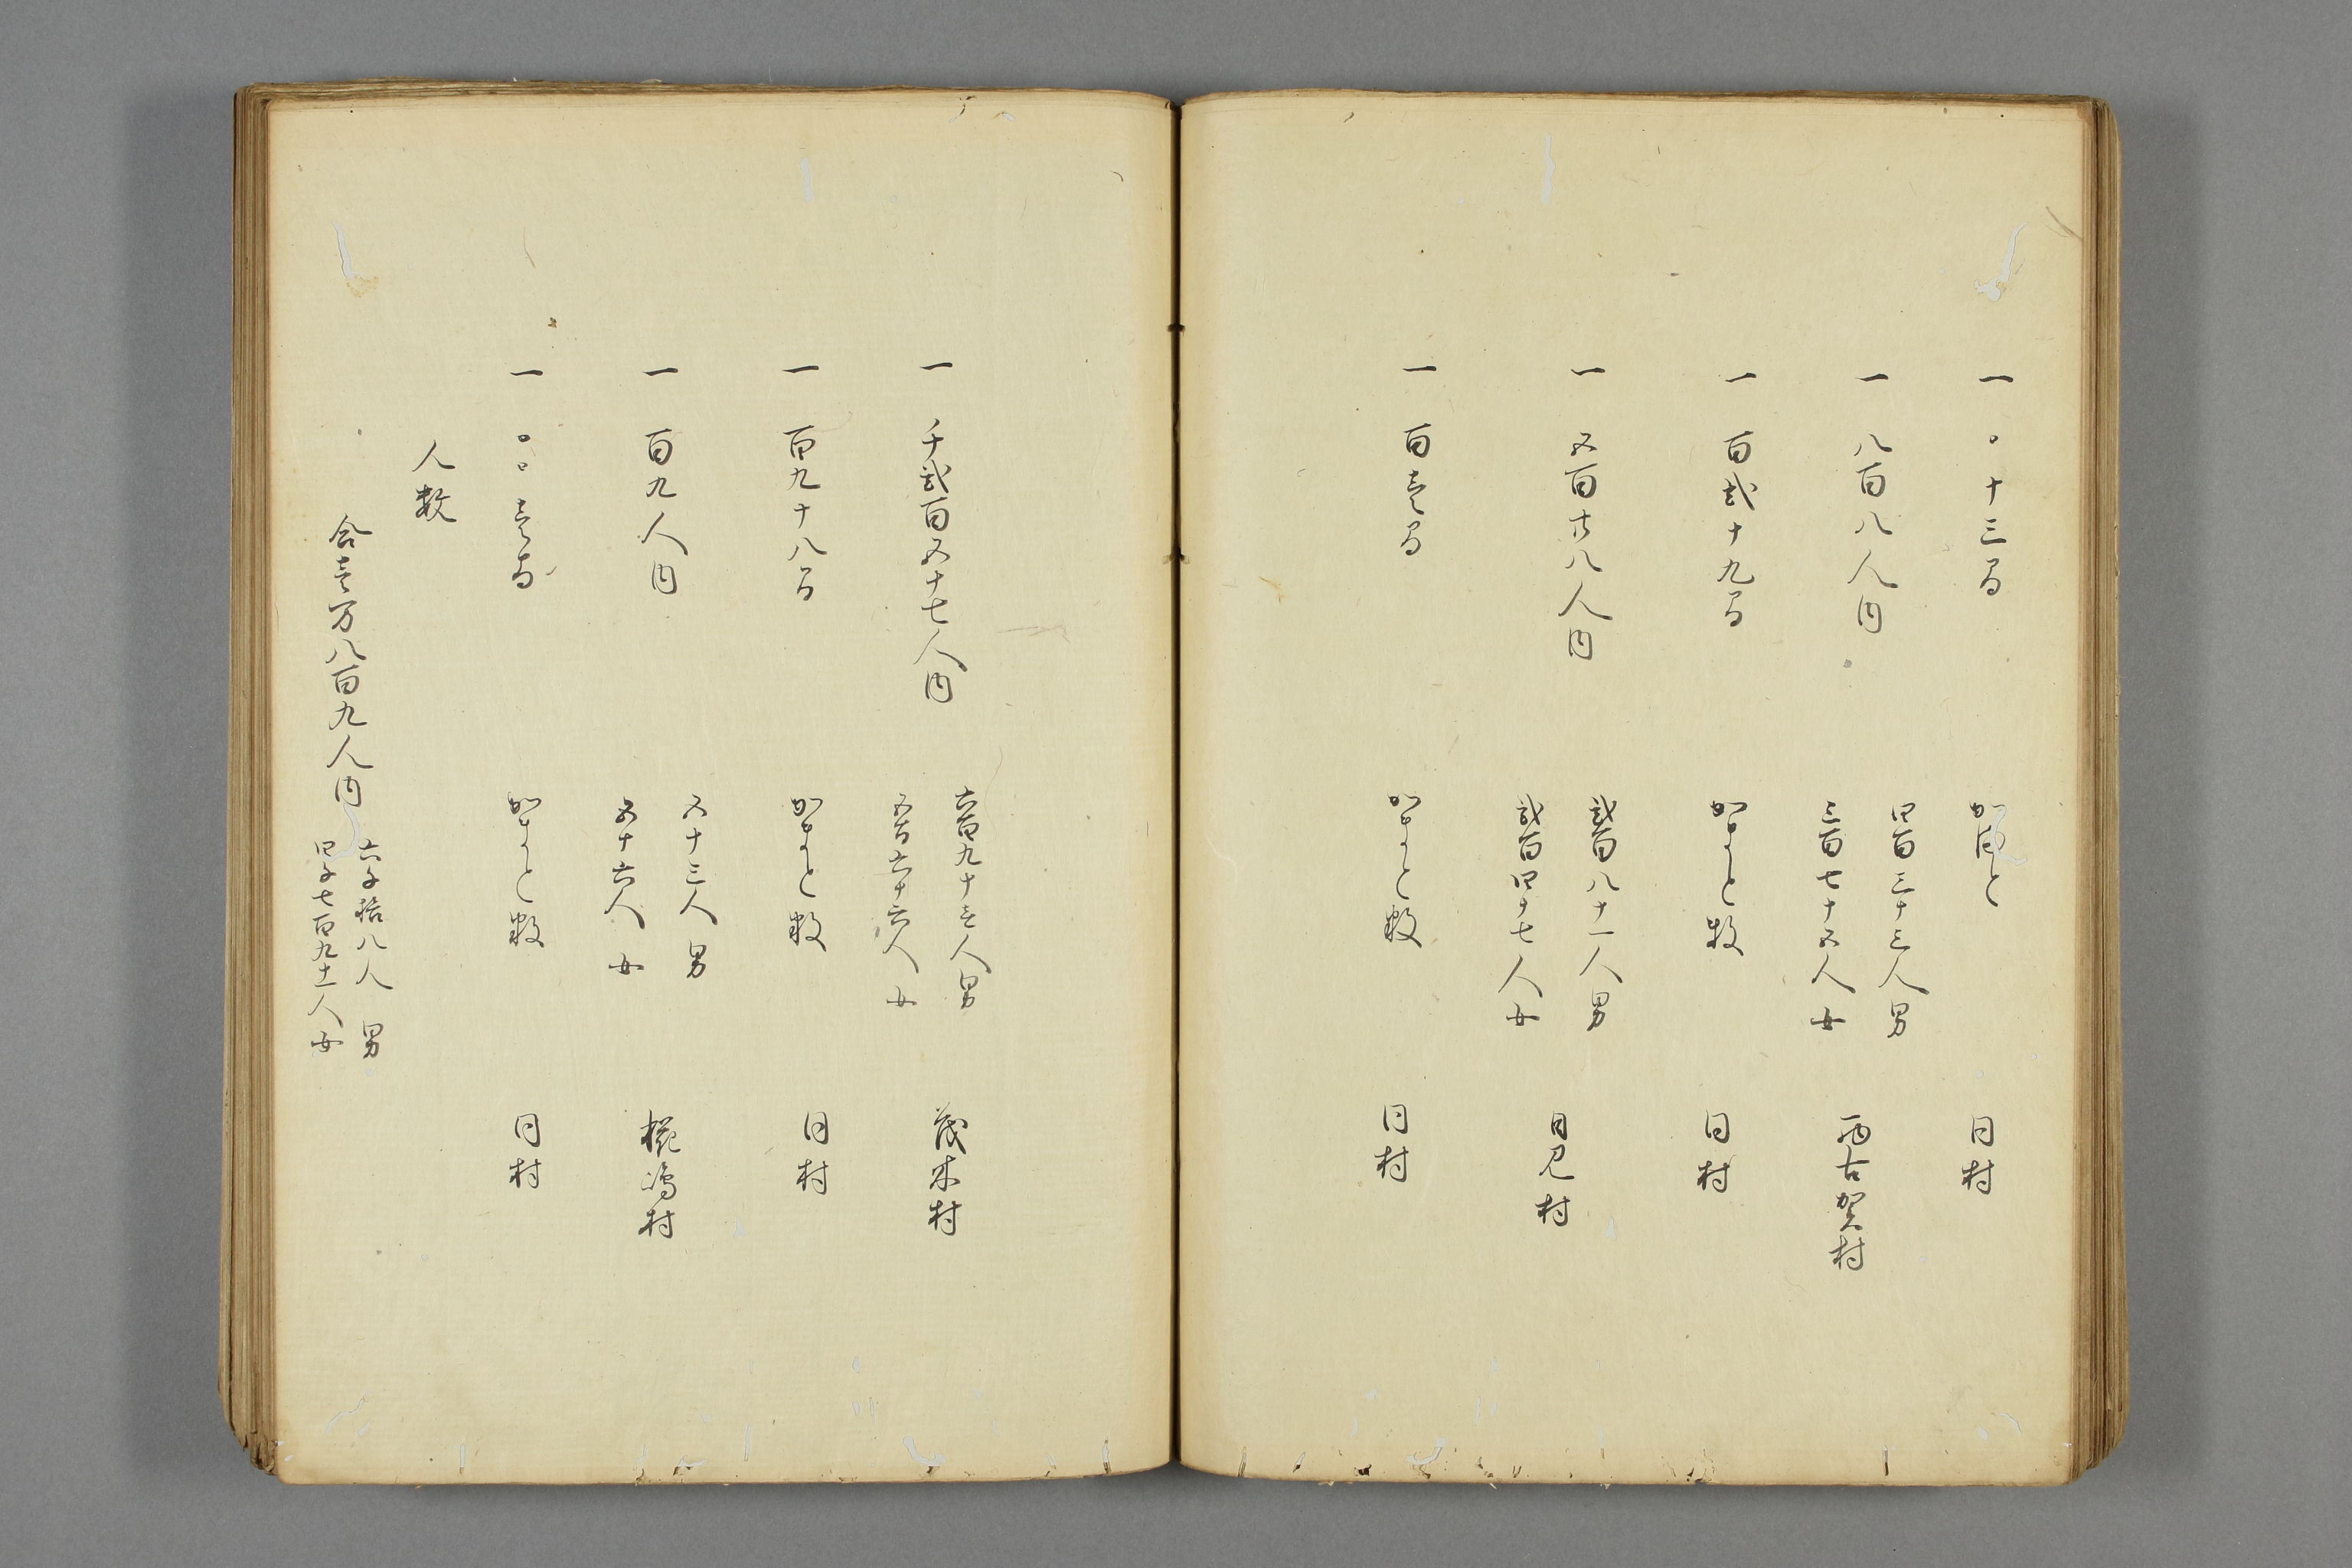 一 〃十三間 かまと 同村
一 八百八人内 四百三十三人男 西古賀村
三百七十五人女
一 百弐十九間 かまと数 同村
一 五百廿八人内 弐百八十一人男 日見村
弐百四十七人女
一 百壱間 かまと数 同村
一 千弐百五十七人内 六百九十壱人男 茂木村
五百六十六人女
一 百九十八間 かまと数 同村
一 百九人内 五十三人男 椛嶋村
五十六人女
一 〃〃壱間 かまと数 同村
人数
合壱万八百九人内 六千拾八人男
四千七百九十一人女